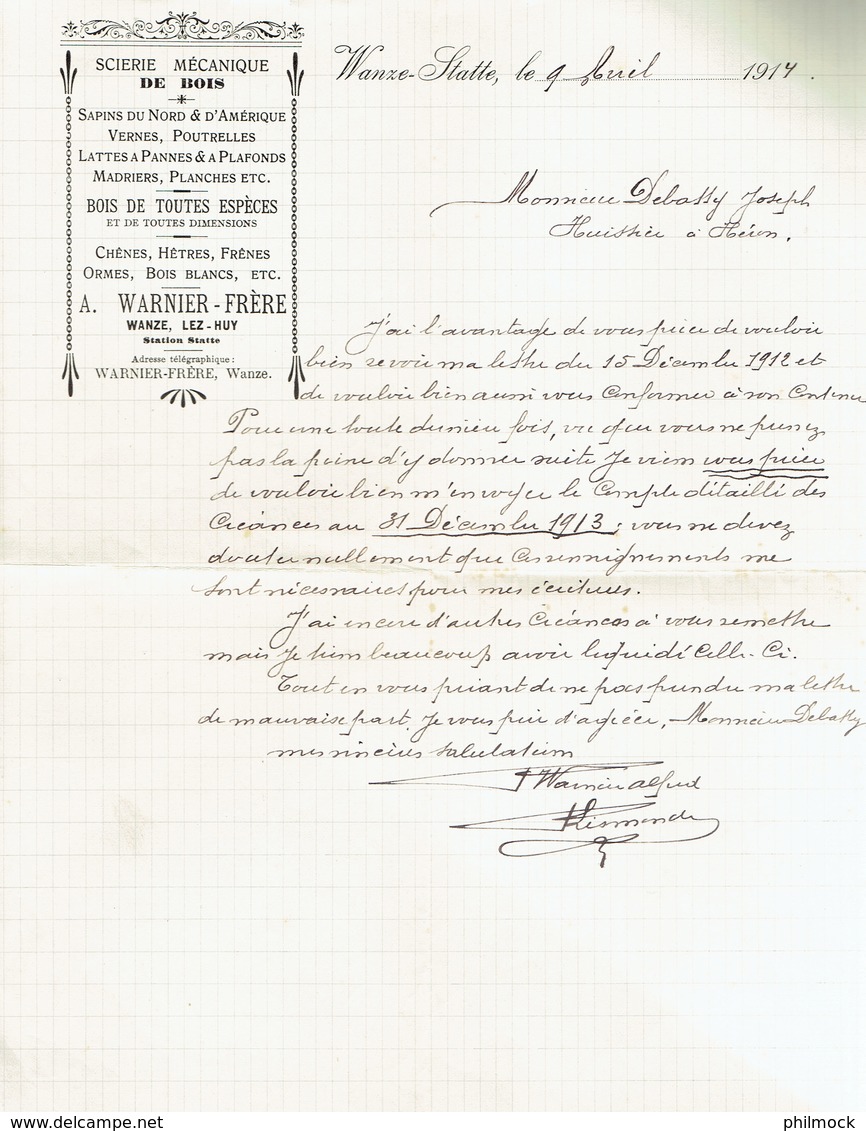 SCIERIE MÉCANIQUE
DE BOIS
SAPINS DU NORD & D'AMÉRIQUE
VERNES, POUTRELLES
LATTES A PANNES & A PLAFONDS
MADRIERS, PLANCHES ETC.
BOIS DE TOUTES ESPÈCES
ET DE TOUTES DIMENSIONS
CHÊNES, HÊTRES, FRÊNES
ORMES, BOIS BLANCS, ETC.
A. WARNIER-FRÈRE
WANZE, LEZ-HUY
Station Statte
Adresse télégraphique :
WARNIER-FRÈRE, Wanze.
Wanze-Statte, le 9 Avril 1914.
Monsieur Debatty Joseph
Huissier à Héron.
J'ai l'avantage de vous prier de vouloir
bien revoir ma lettre du 15 Décembre 1912 et
de vouloir bien aussi vous conformer à son contenu
Pour une toute dernière fois, vu que vous ne prenez
pas la peine d'y donner suite je viens vous prier
de vouloir bien m'envoyer le compte détaillé des
Créances au 31 Décembre 1913 ; vous ne devez
douter nullement que ces renseignements me
sont nécessaires pour mes écritures.
J'ai encore d'autres Créances à vous remettre
mais je tiens beaucoup avoir liquidé celle-ci.
Tout en vous priant de ne pas prendre ma lettre
de mauvaise part, je vous prie d'agréer, Monsieur Debatty
mes sincères salutations
Warnier Alfred
philmock